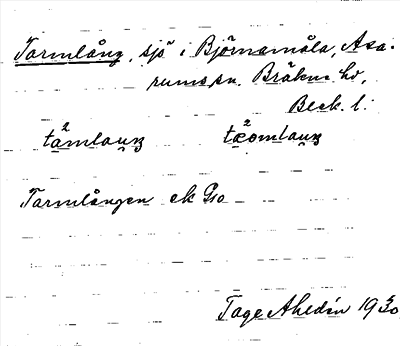 Tarmlång, sjö i Björnamåla, Asa-
rums sn. Bräkne hd,
Blek. l.
Tarmlången ek Go
Tage Ahldén 1930